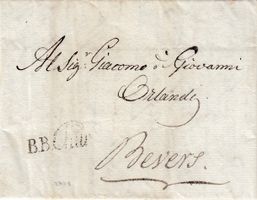 Al Sig.r Giacomo q. Giovanni
Orlandi
B.B.
Bevers.